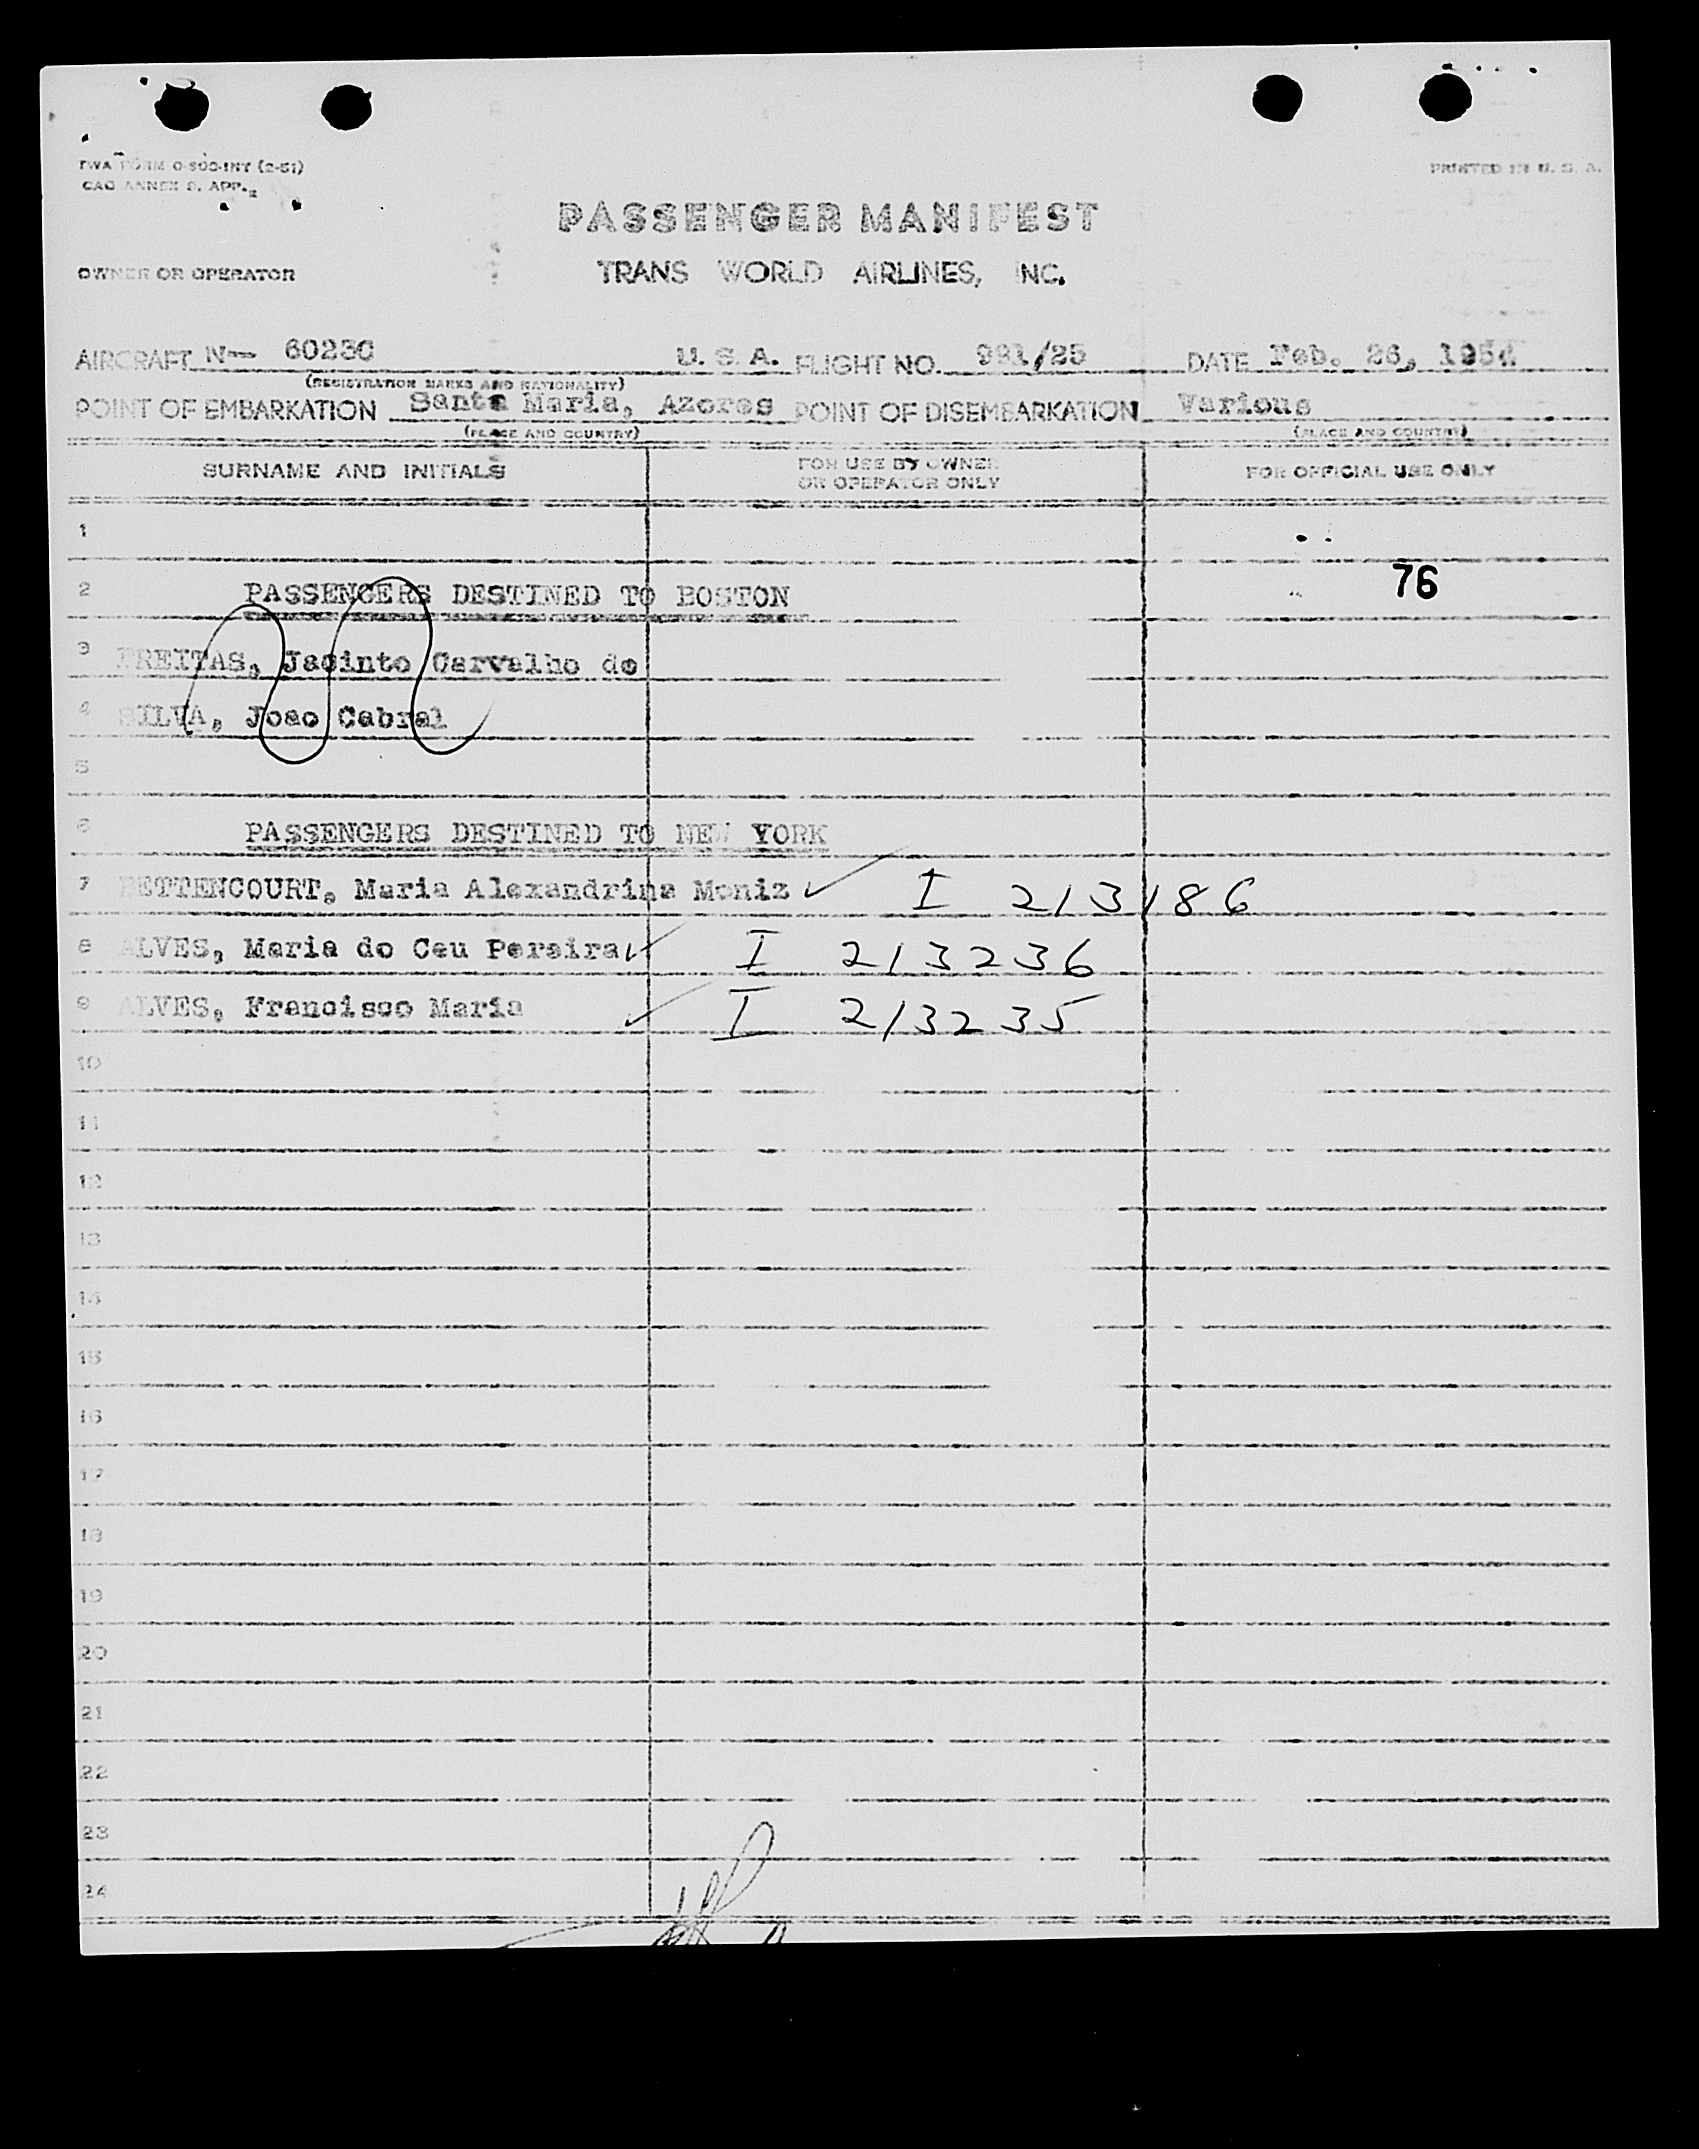 TWA FORM O-500-INT (2-51)
CAO ANNEX 9, APP. 2
PRINTED IN U. S. A.
PASSENGER MANIFEST
OWNER OR OPERATOR TRANS WORLD AIRLINES, INC.
AIRCRAFT N-- 6023C U. S. A. FLIGHT NO. 991/25 DATE Feb. 26, 1954
(REGISTRATION MARKS AND NATIONALITY)
POINT OF EMBARKATION Santa Maria, Azores POINT OF DISEMBARKATION Various
(PLACE AND COUNTRY) (PLACE AND COUNTRY)
SURNAME AND INITIALS FOR USE BY OWNER OR OPERATOR ONLY FOR OFFICIAL USE ONLY
1
2 PASSENGERS DESTINED TO BOSTON 76
3 FREITAS, Jacinto Carvalho de
4 SILVA, Joao Cabral
5
6 PASSENGERS DESTINED TO NEW YORK
7 BETTENCOURT, Maria Alexandrina Moniz ✓ I 213186
8 ALVES, Maria do Ceu Pereira ✓ I 213236
9 ALVES, Francisco Maria ✓ I 213235
10
11
12
13
14
15
16
17
18
19
20
21
22
23
24